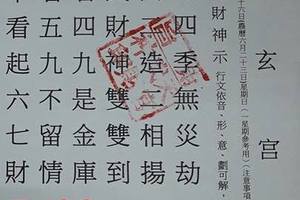 玄宮
十六日(農曆六月二十三日)星期日(一星期參考用)(注意事項
財神示 行文依音、形、意、劃可解,
四季無災劫
造二相揚
財神雙雙到
四九是金庫
五九不留情
看起六七財